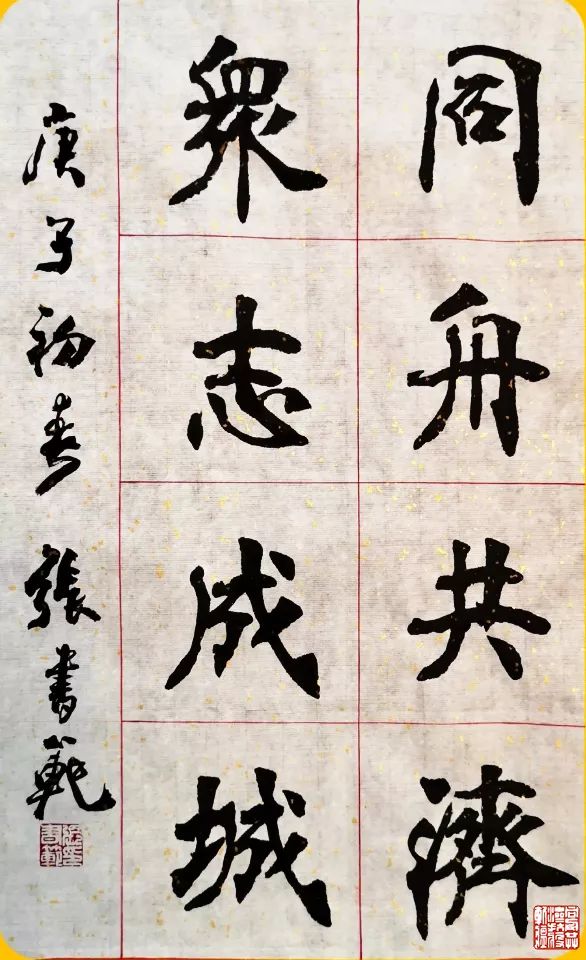 同舟共濟
衆志成城
庚子初春張書範